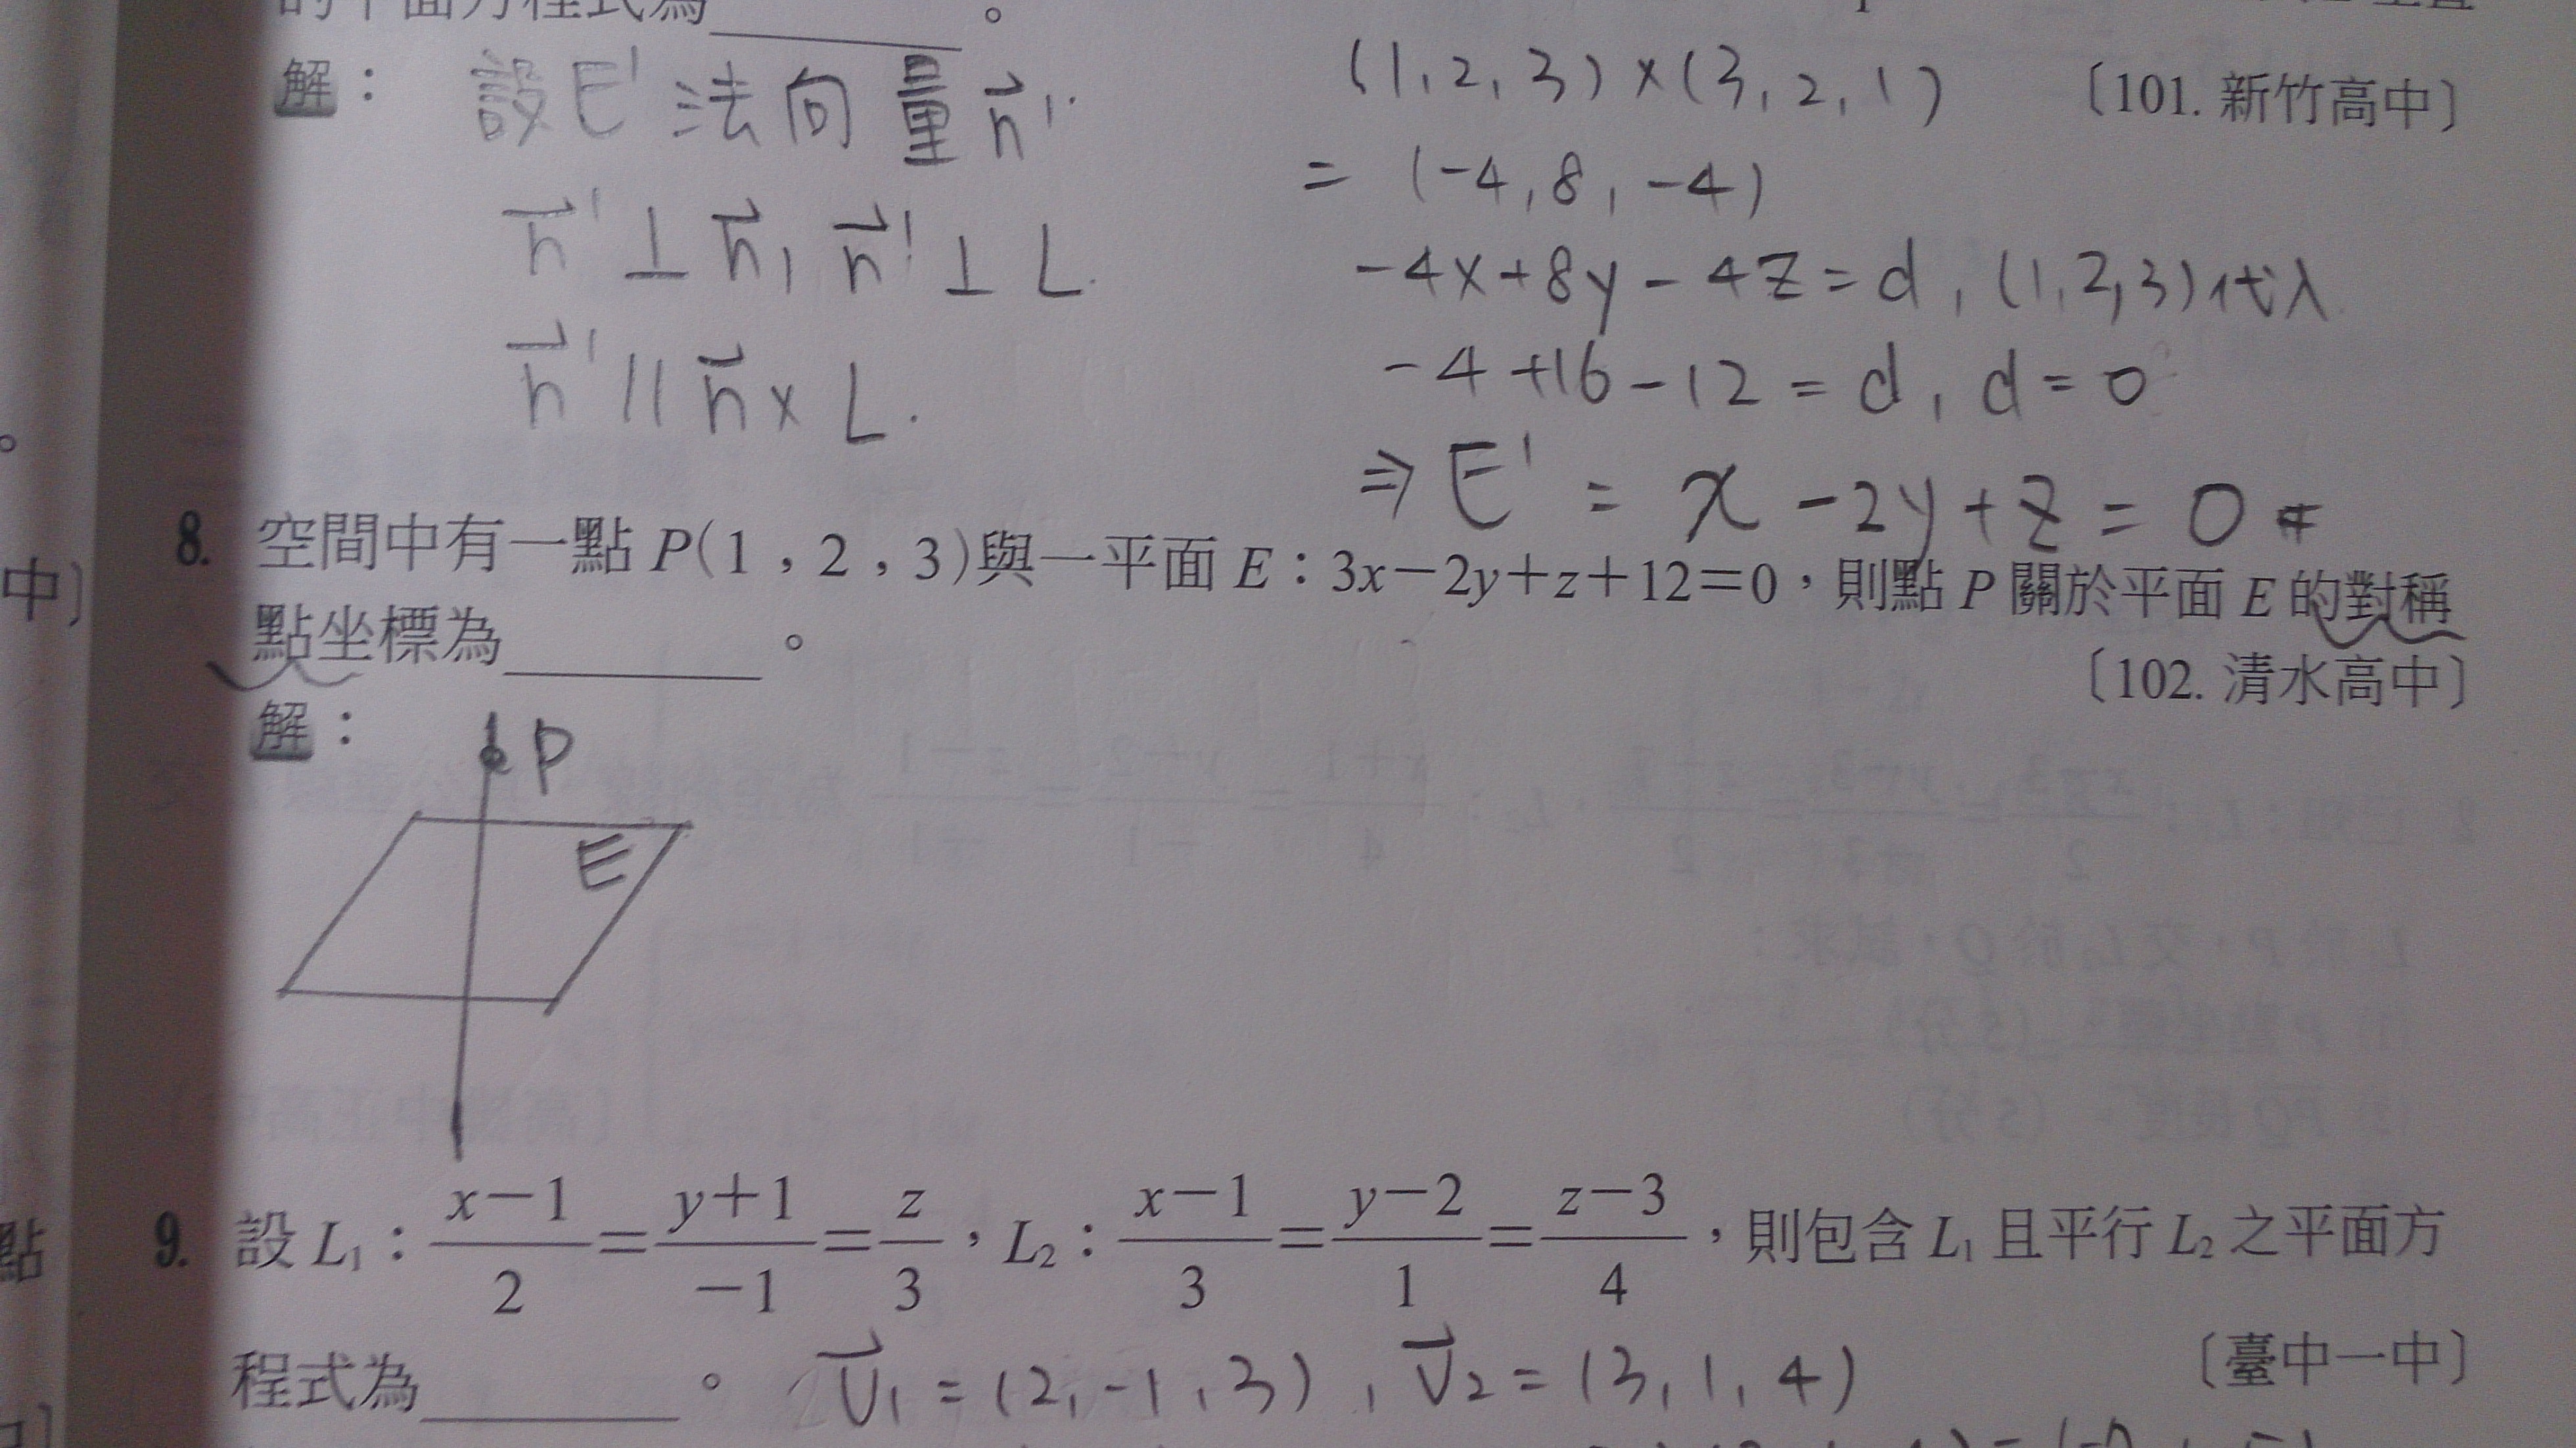 的平面方程式為______。
解：
設E' 法向量n⃗'
n⃗' ⊥ n⃗, n⃗' ⊥ L.
n⃗' // n⃗ × L.
(1, 2, 3) × (3, 2, 1)
〔101. 新竹高中〕
= (-4, 8, -4)
-4x+8y-4z=d, (1,2,3)代入
-4+16-12=d, d=0
⇒ E' = x-2y+z=0 #
8. 空間中有一點 P(1，2，3)與一平面 E：3x-2y+z+12=0，則點 P 關於平面 E 的對稱
點坐標為______。
〔102. 清水高中〕
解：
P
E
9. 設 L₁：(x-1)/2=(y+1)/-1=z/3，L₂：(x-1)/3=(y-2)/1=(z-3)/4，則包含 L₁ 且平行 L₂ 之平面方
程式為______。 v⃗₁=(2, -1, 3), v⃗₂=(3, 1, 4)
〔臺中一中〕
中〕
點